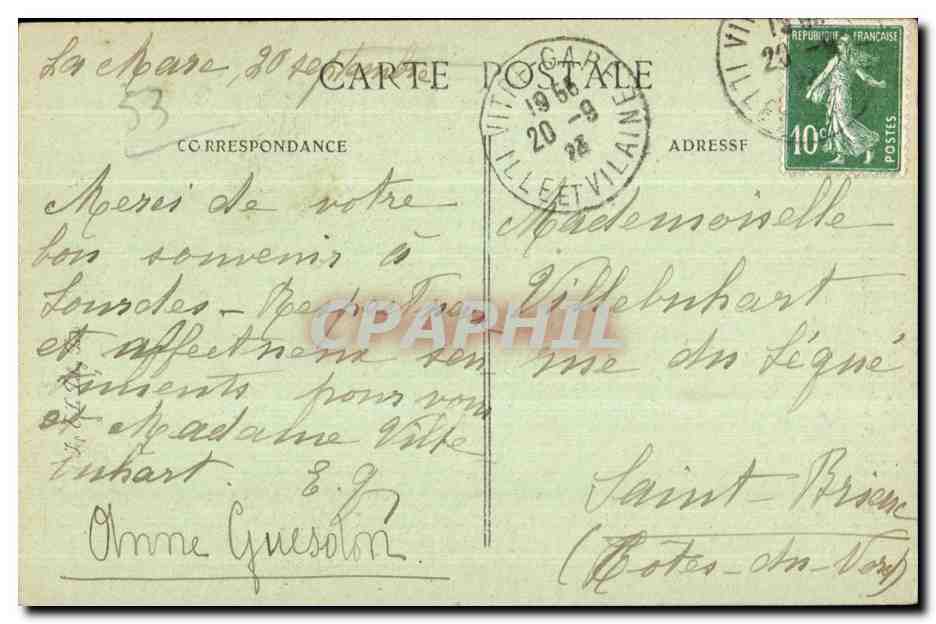 La Mare, 20 septembre
53
CARTE POSTALE
CORRESPONDANCE
ADRESSE
VITRE-GARE
19 55
20 -9
ILLE ET VILAINE
REPUBLIQUE FRANÇAISE
10c
POSTES
Merci de votre
bon souvenir à
Lourdes - Respectueux
et affectueux sen
timents pour vous
et Madame Ville
buhart. E. g
Anne Guesdon
Mademoiselle
Villebuhart
rue du Légué
Saint-Brieuc
(Cotes-du-Nord)
CPAPHIL